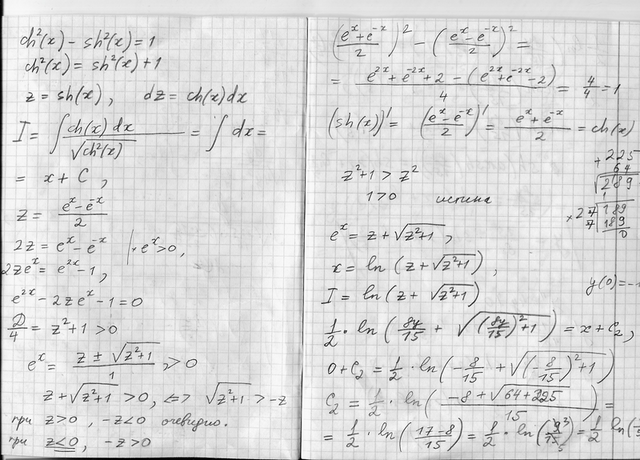 ch²(x) - sh²(x) = 1
ch²(x) = sh²(x) + 1
z = sh(x), dz = ch(x)dx
I = ∫ ch(x) dx / √(ch²(x)) = ∫ dx =
= x + C,
z = (eˣ - e⁻ˣ)/2
2z = eˣ - e⁻ˣ | · eˣ > 0,
2zeˣ = e²ˣ - 1,
e²ˣ - 2zeˣ - 1 = 0
D/4 = z² + 1 > 0
eˣ = (z ± √(z²+1))/1 > 0
z + √(z²+1) > 0, <=> √(z²+1) > -z
при z > 0, -z < 0 очевидно.
при z < 0, -z > 0
((eˣ + e⁻ˣ)/2)² - ((eˣ - e⁻ˣ)/2)² =
= (e²ˣ + e⁻²ˣ + 2 - (e²ˣ + e⁻²ˣ - 2))/4 = 4/4 = 1
(sh(x))' = ((eˣ - e⁻ˣ)/2)' = (eˣ + e⁻ˣ)/2 = ch(x)
+ 225
64
√289
1
× 27 | 189
7 | 189
0
z² + 1 > z²
1 > 0 истина
eˣ = z + √(z²+1),
x = ln (z + √(z²+1)),
y(0) = -
I = ln(z + √(z²+1))
1/2 · ln(8y/15 + √((8y/15)² + 1)) = x + C₂,
0 + C₂ = 1/2 · ln(-8/15 + √((-8/15)² + 1))
C₂ = 1/2 · ln((-8 + √(64 + 225))/15) =
= 1/2 · ln((17-8)/15) = 1/2 · ln(9³/15₅) = 1/2 ln(